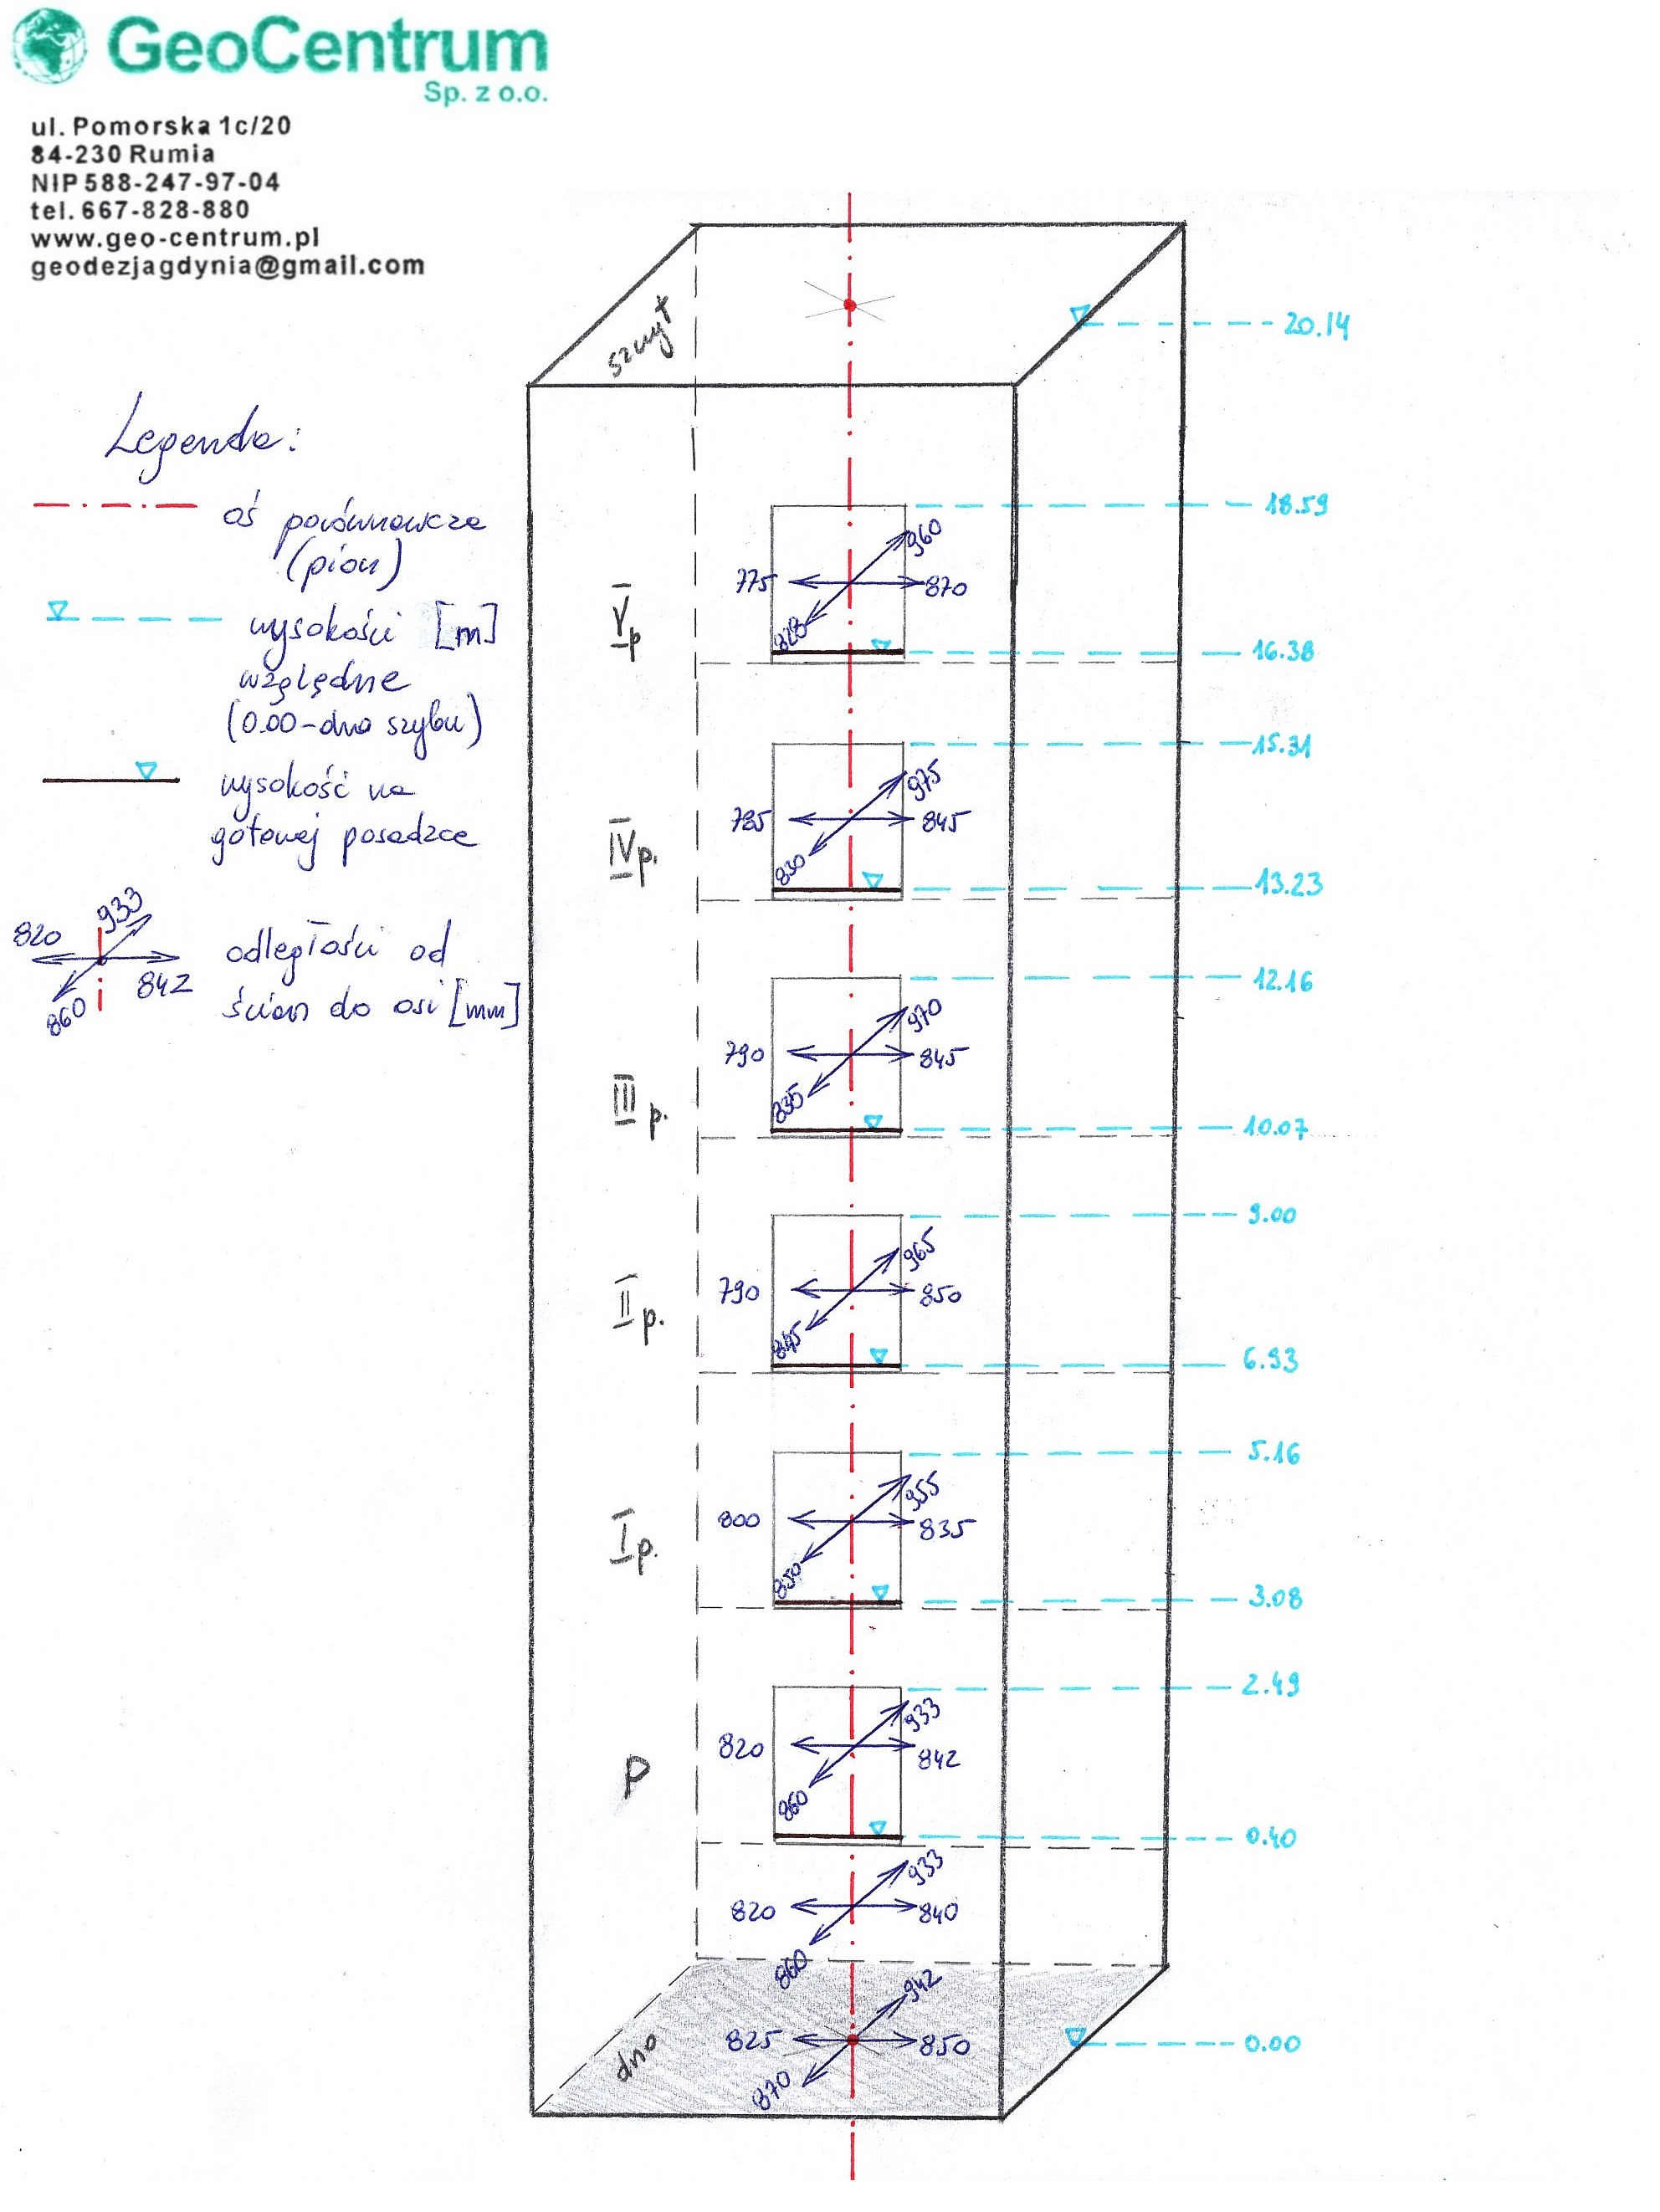 GeoCentrum
Sp. z o.o.
ul. Pomorska 1c/20
84-230 Rumia
NIP 588-247-97-04
tel. 667-828-880
www.geo-centrum.pl
geodezjagdynia@gmail.com
szczyt
20.14
Legenda:
oś porównawcza
(pion)
wysokości [m]
względne
(0.00-dno szybu)
wysokość na
gotowej posadzce
820
933
842
860
odległości od
ścian do osi [mm]
18.59
V p
960
775
870
828
16.38
15.31
IV p.
975
785
845
830
13.23
12.16
III p.
970
790
845
835
10.07
9.00
II p.
965
790
850
845
6.93
5.16
I p.
955
800
835
850
3.08
2.49
P
933
820
842
860
0.40
933
820
840
860
dno
942
825
850
870
0.00